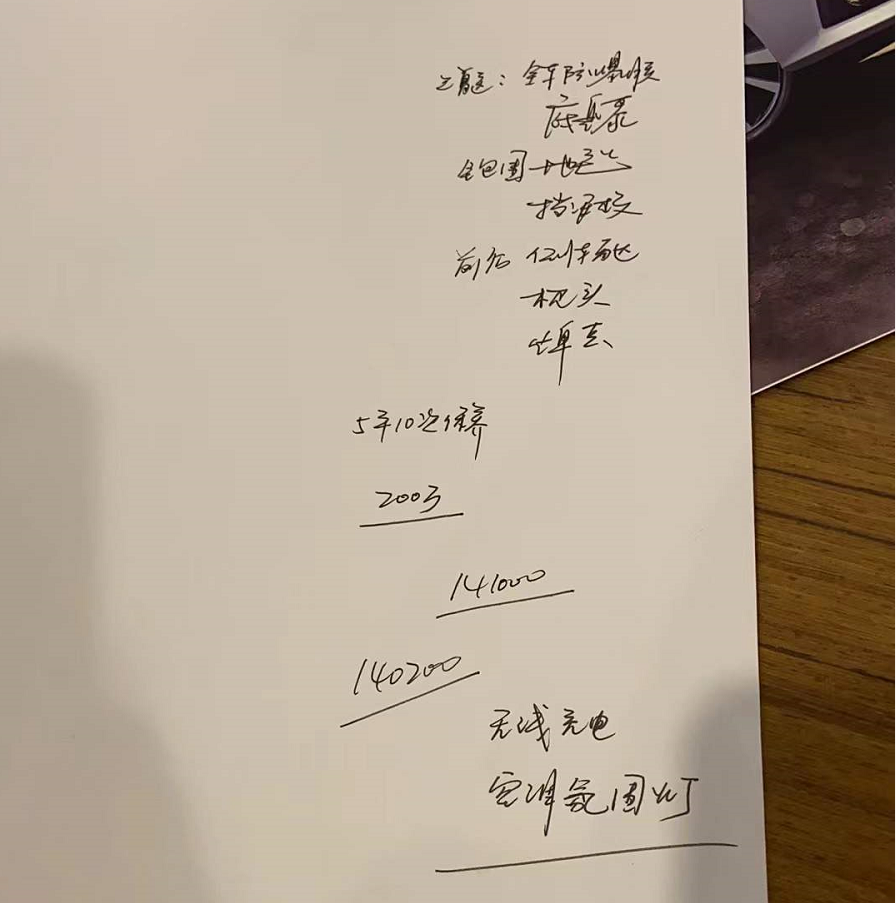 全车防爆膜
底盘
全包围地毯
挡泥板
前后行车记录
枕头
坐垫
5年10次保养
2003
141000
140200
无线充电
空调氛围灯